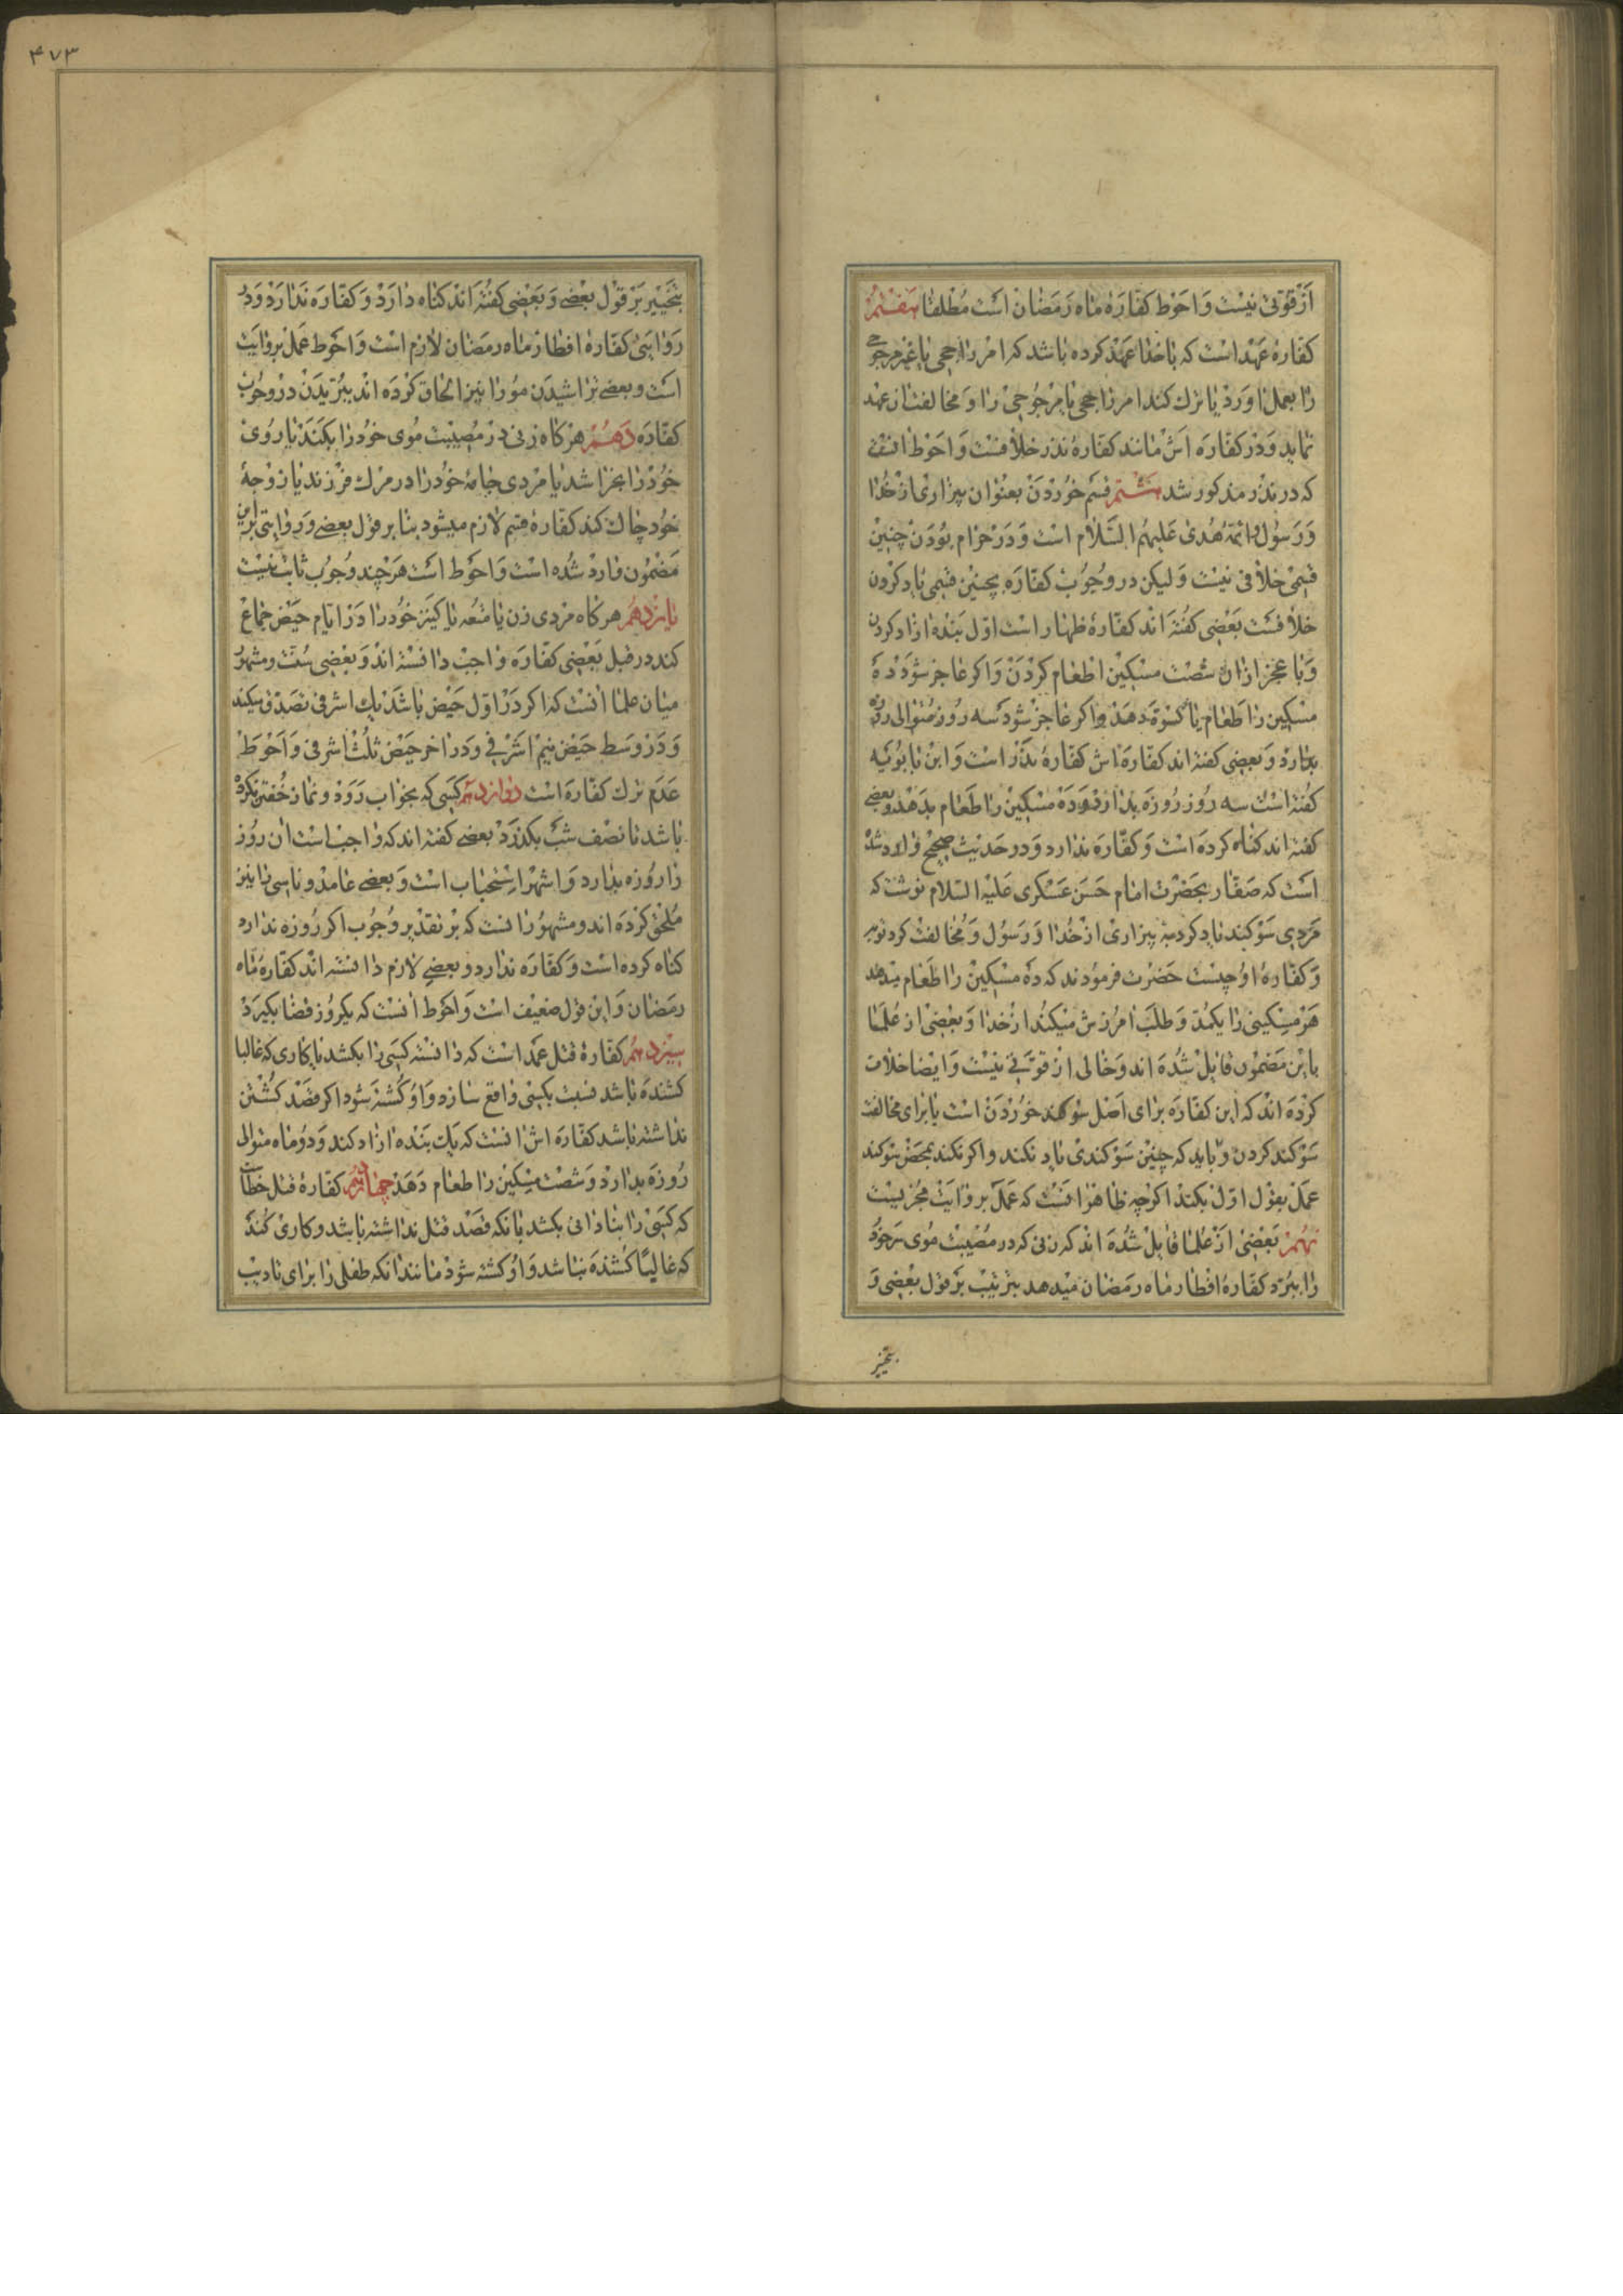 از قوتی نیست و احوط کفاره ماه رمضان است مطلقا هفتم
کفاره عهد است که با خدا عهد کرده باشد که امر راجحی یا غیر مرجوحی
را بعمل اورد یا ترک کند امر راجحی یا مرجوحی را و مخالفت ان عهد
نماید و در کفاره اش مانند کفاره نذر خلافست و احوط انست
که در نذر مذکور شد هشتم قسم خوردن بعنوان بیزاری از خدا
و رسول و ائمه هدی علیهم السلام است و در حرام بودن چنین
قسمی خلافی نیست و لیکن در وجوب کفاره بچنین قسمی یاد کردن
خلافست بعضی کفته اند کفاره ظهار است اول بنده ازاد کردن
و با عجز از ان شصت مسکین اطعام کردن و اکر عاجز شود ده
مسکین را طعام یا کسوة دهد و اکر عاجز شود سه روز متوالی روزه
بدارد و بعضی کفته اند کفاره اش کفاره نذر است و ابن بابویه
کفته است سه روز روزه بدارد و ده مسکین را طعام بدهد و بعضی
کفته اند کناه کرده است و کفاره ندارد و در حدیث صحیح وارد شده
است که صفار بحضرت امام حسن عسکری علیه السلام نوشت که
مردی سوکند یاد کرد به بیزاری از خدا و رسول و مخالفت کرد توبه
و کفاره او چیست حضرت فرمودند که ده مسکین را طعام میدهد
هر مسکینی را یکمد و طلب امرزش میکند از خدا و بعضی از علما
باین مضمون قایل شده اند و خالی از قوتی نیست و ایضا خلاف
کرده اند که این کفاره برای اصل سوکند خوردن است یا برای مخالفت
سوکند کردن و باید که چنین سوکندی یاد نکند و اکر نکند بمحض سوکند
عمل بقول اول بکند اکرچه ظاهرا انست که عمل بروایت مجزیست
نهم بعضی از علما قایل شده اند که زنی که در مصیبت موی سر خود
را ببرد کفاره افطار ماه رمضان میدهد بترتیب بر قول بعضی و
بتخییر
۴۷۳
بتخییر بر قول بعضی و بعضی کفته اند کناه دارد و کفاره ندارد و در
روایتی کفاره افطار ماه رمضان لازم است و احوط عمل بروایت
است و بعضی تراشیدن مو را نیز الحاق کرده اند ببریدن در وجوب
کفاره دهم هرکاه زنی در مصیبت موی خود را بکند یا روی
خود را بخراشد یا مردی جامه خود را در مرک فرزند یا زوجه
خود چاک کند کفاره قسم لازم میشود بنا بر قول بعضی و روایتی براین
مضمون وارد شده است و احوط است هرچند وجوب ثابت نیست
یازدهم هرکاه مردی زن یا متعه یا کنیز خود را در ایام حیض جماع
کند در قبل بعضی کفاره واجب دانسته اند و بعضی سنت و مشهور
میان علما انست که اکر در اول حیض باشد یک اشرفی تصدق میکند
و در وسط حیض نیم اشرفی و در اخر حیض ثلث اشرفی و احوط
عدم ترک کفاره است دوازدهم کسی که بخواب رود و نماز خفتن نکرده
باشد تا نصف شب بکذرد بعضی کفته اند که واجب است ان روز
را روزه بدارد و اشهر استحباب است و بعضی عامد و ناسی را نیز
ملحق کرده اند و مشهور انست که بر تقدیر وجوب اکر روزه ندارد
کناه کرده است و کفاره ندارد و بعضی لازم دانسته اند کفاره ماه
رمضان و این قول ضعیف است و احوط انست که یکروز قضا بکیرد
سیزدهم کفاره قتل عمد است که دانسته کسی را بکشد یا کاری که غالبا
کشنده باشد نسبت بکسی واقع سازد و او کشته شود اکر قصد کشتن
نداشته باشد کفاره اش انست که یک بنده ازاد کند و دو ماه متوالی
روزه بدارد و شصت مسکین را طعام دهد چهاردهم کفاره قتل خطاست
که کسی را بنادانی بکشد یا نکه قصد قتل نداشته باشد و کاری کند
که غالبا کشنده نباشد و او کشته شود مانند انکه طفلی را برای تادیب